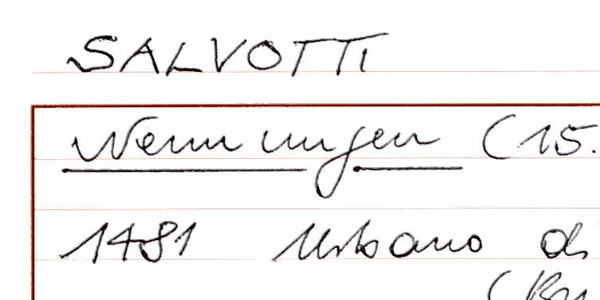 SALVOTTI
Nennungen (15.
1481 Urbano di
(Bu